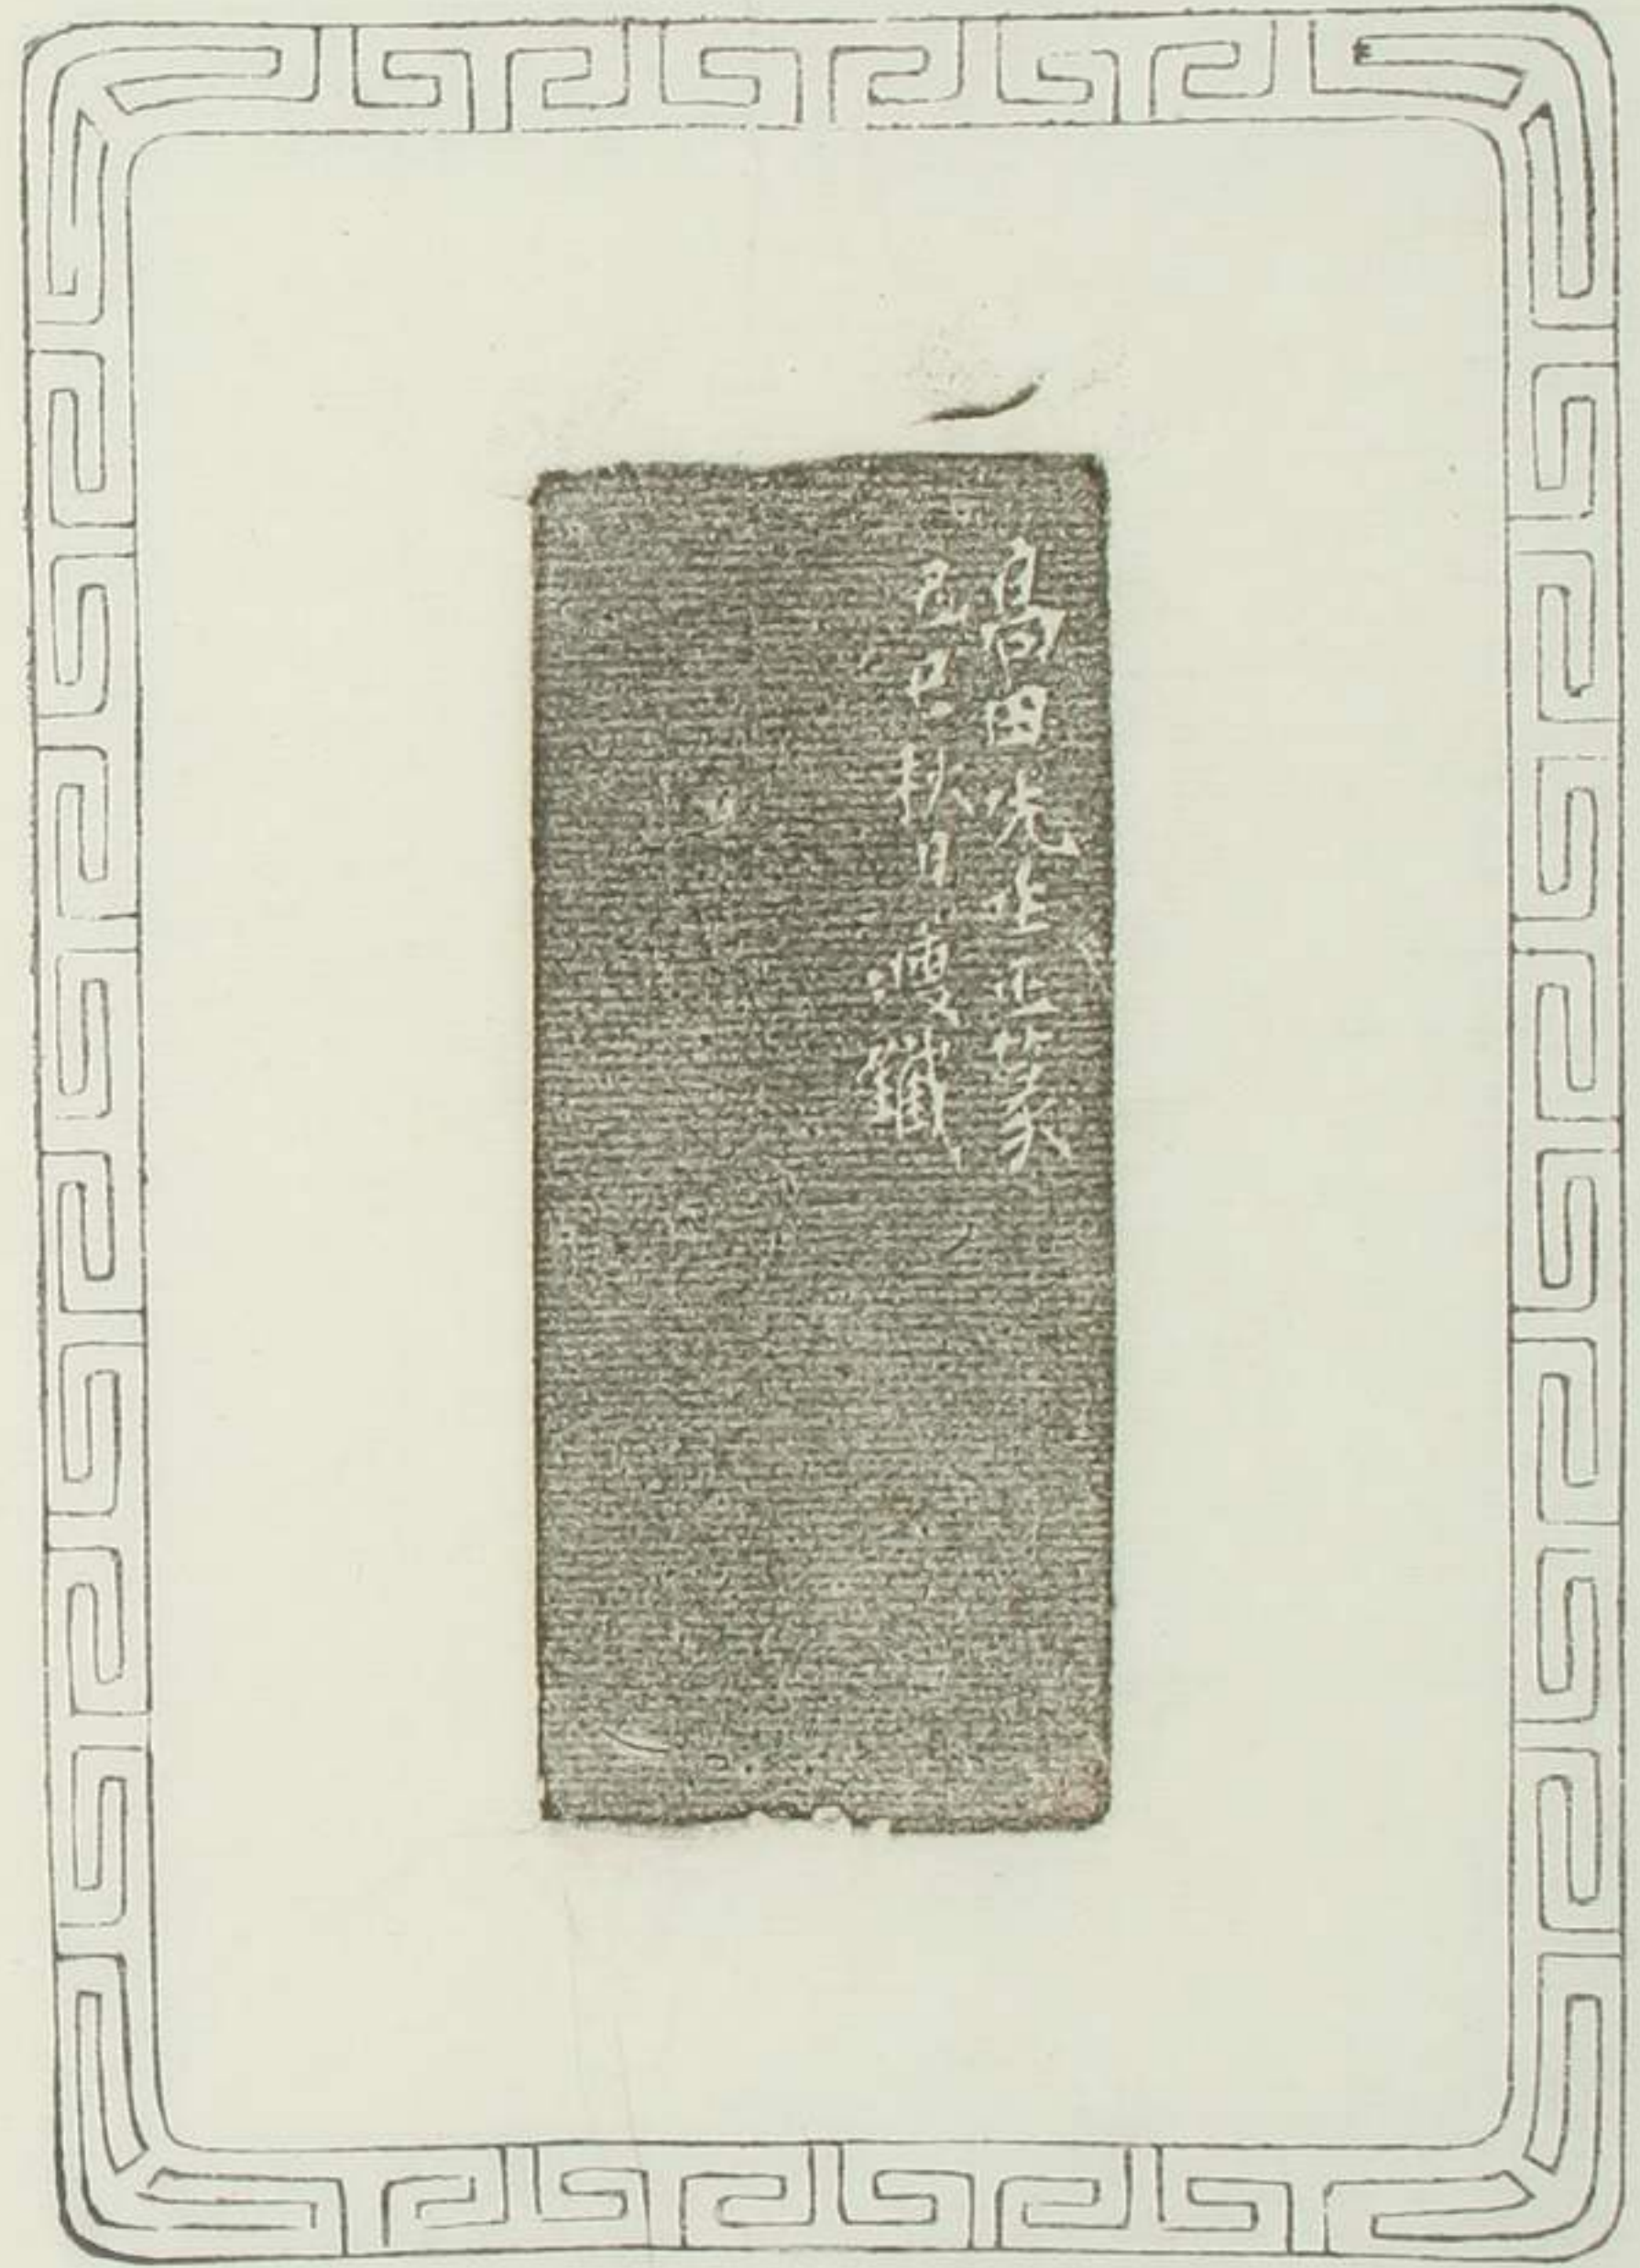 高田先生正篆
己巳秋日瘦鐵